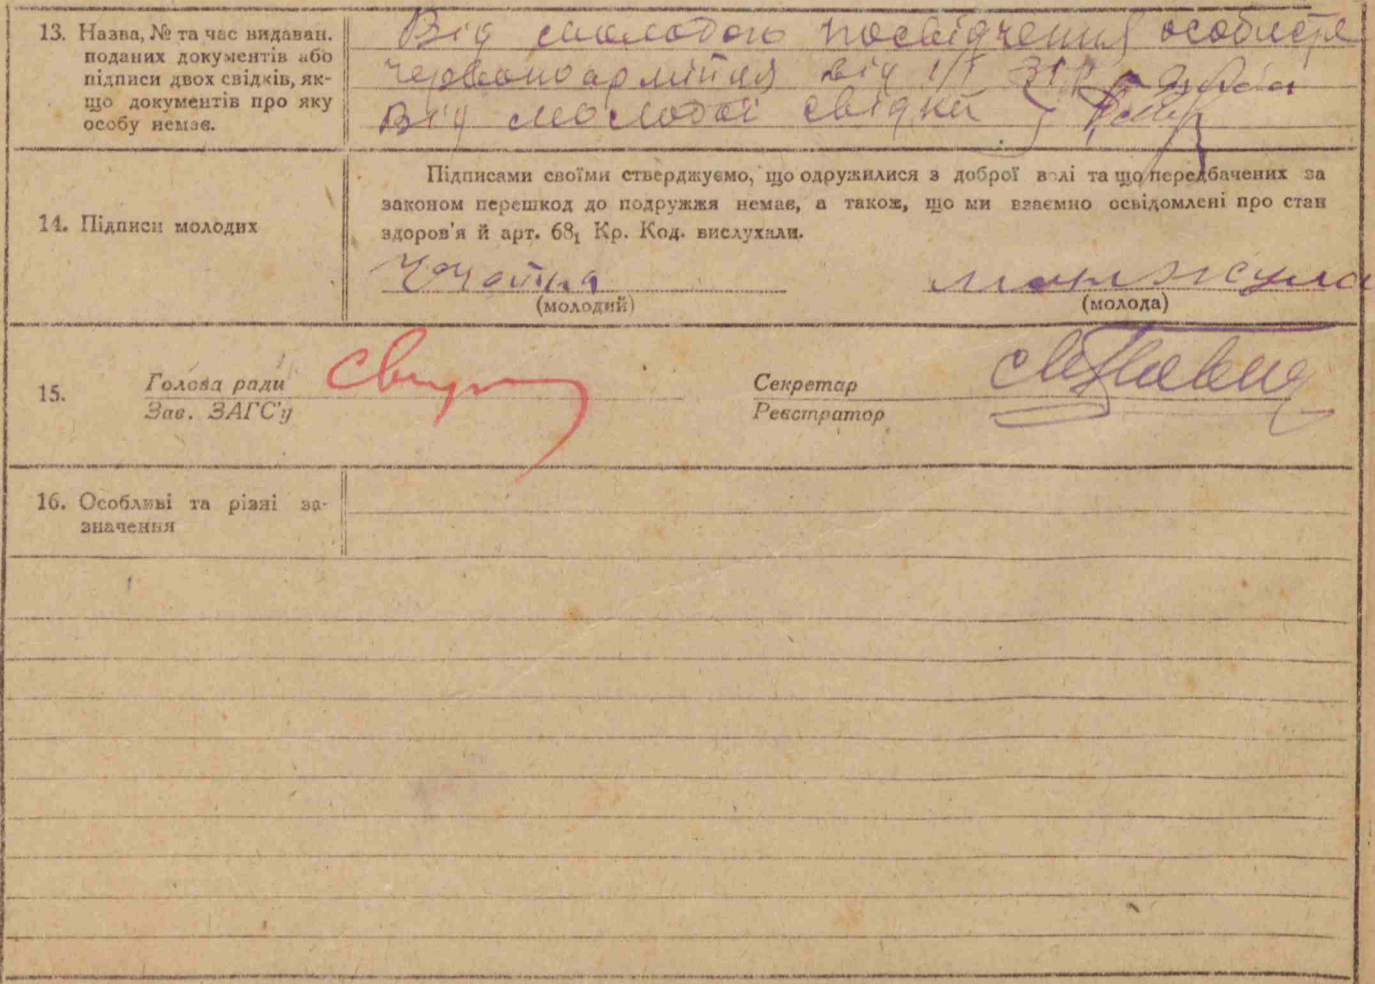 13. Назва, № та час видаван.
поданих документів або
підписи двох свідків, як-
що документів про яку
особу немає.
Від молодого посвідчення особисте
червоноармійця від 1/I 31р
Від молодої свідки
14. Підписи молодих
Підписами своїми стверджуємо, що одружилися з доброї волі та що передбачених за
законом перешкод до подружжя немає, а також, що ми взаємно освідомлені про стан
здоров'я й арт. 68₁ Кр. Код. вислухали.
(молодий)
манжула
(молода)
15.
Голова ради
Зав. ЗАГС'у
Секретар
Реєстратор
16. Особливі та різні за-
значення